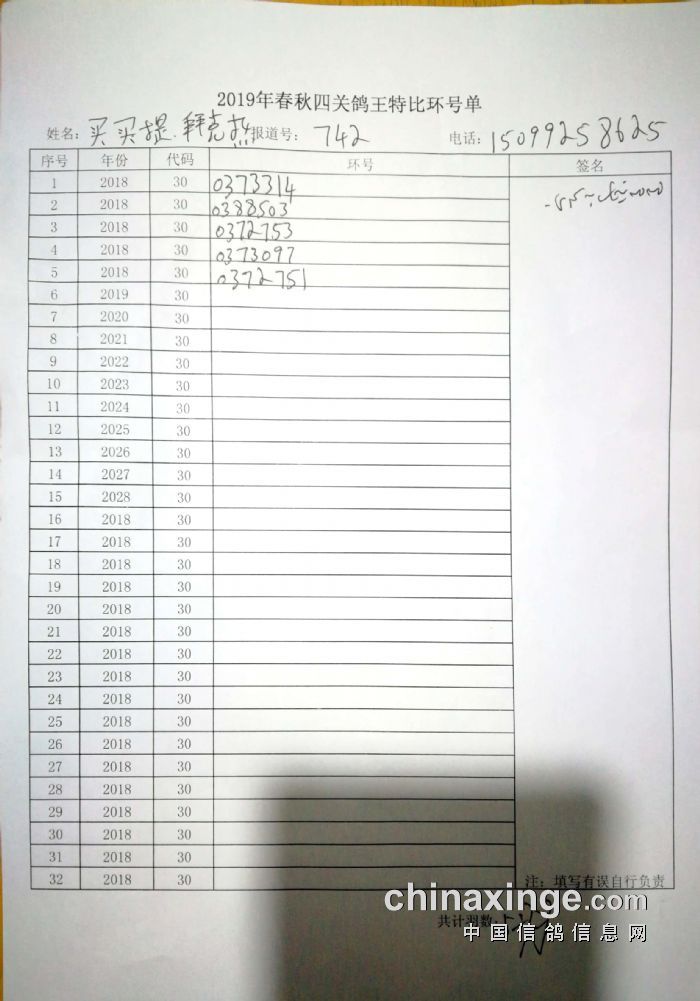 2019年春秋四关鸽王特比环号单
姓名：买买提.拜克热 报道号：742 电话：15099258625
序号 年份 代码 环号 签名
1 2018 30 0373314
2 2018 30 0388503
3 2018 30 0372753
4 2018 30 0373097
5 2018 30 0372751
6 2019 30
7 2020 30
8 2021 30
9 2022 30
10 2023 30
11 2024 30
12 2025 30
13 2026 30
14 2027 30
15 2028 30
16 2018 30
17 2018 30
18 2018 30
19 2018 30
20 2018 30
21 2018 30
22 2018 30
23 2018 30
24 2018 30
25 2018 30
26 2018 30
27 2018 30
28 2018 30
29 2018 30
30 2018 30
31 2018 30
32 2018 30
注：填写有误自行负责
chinaxinge.com
共计羽数：
中国信鸽信息网